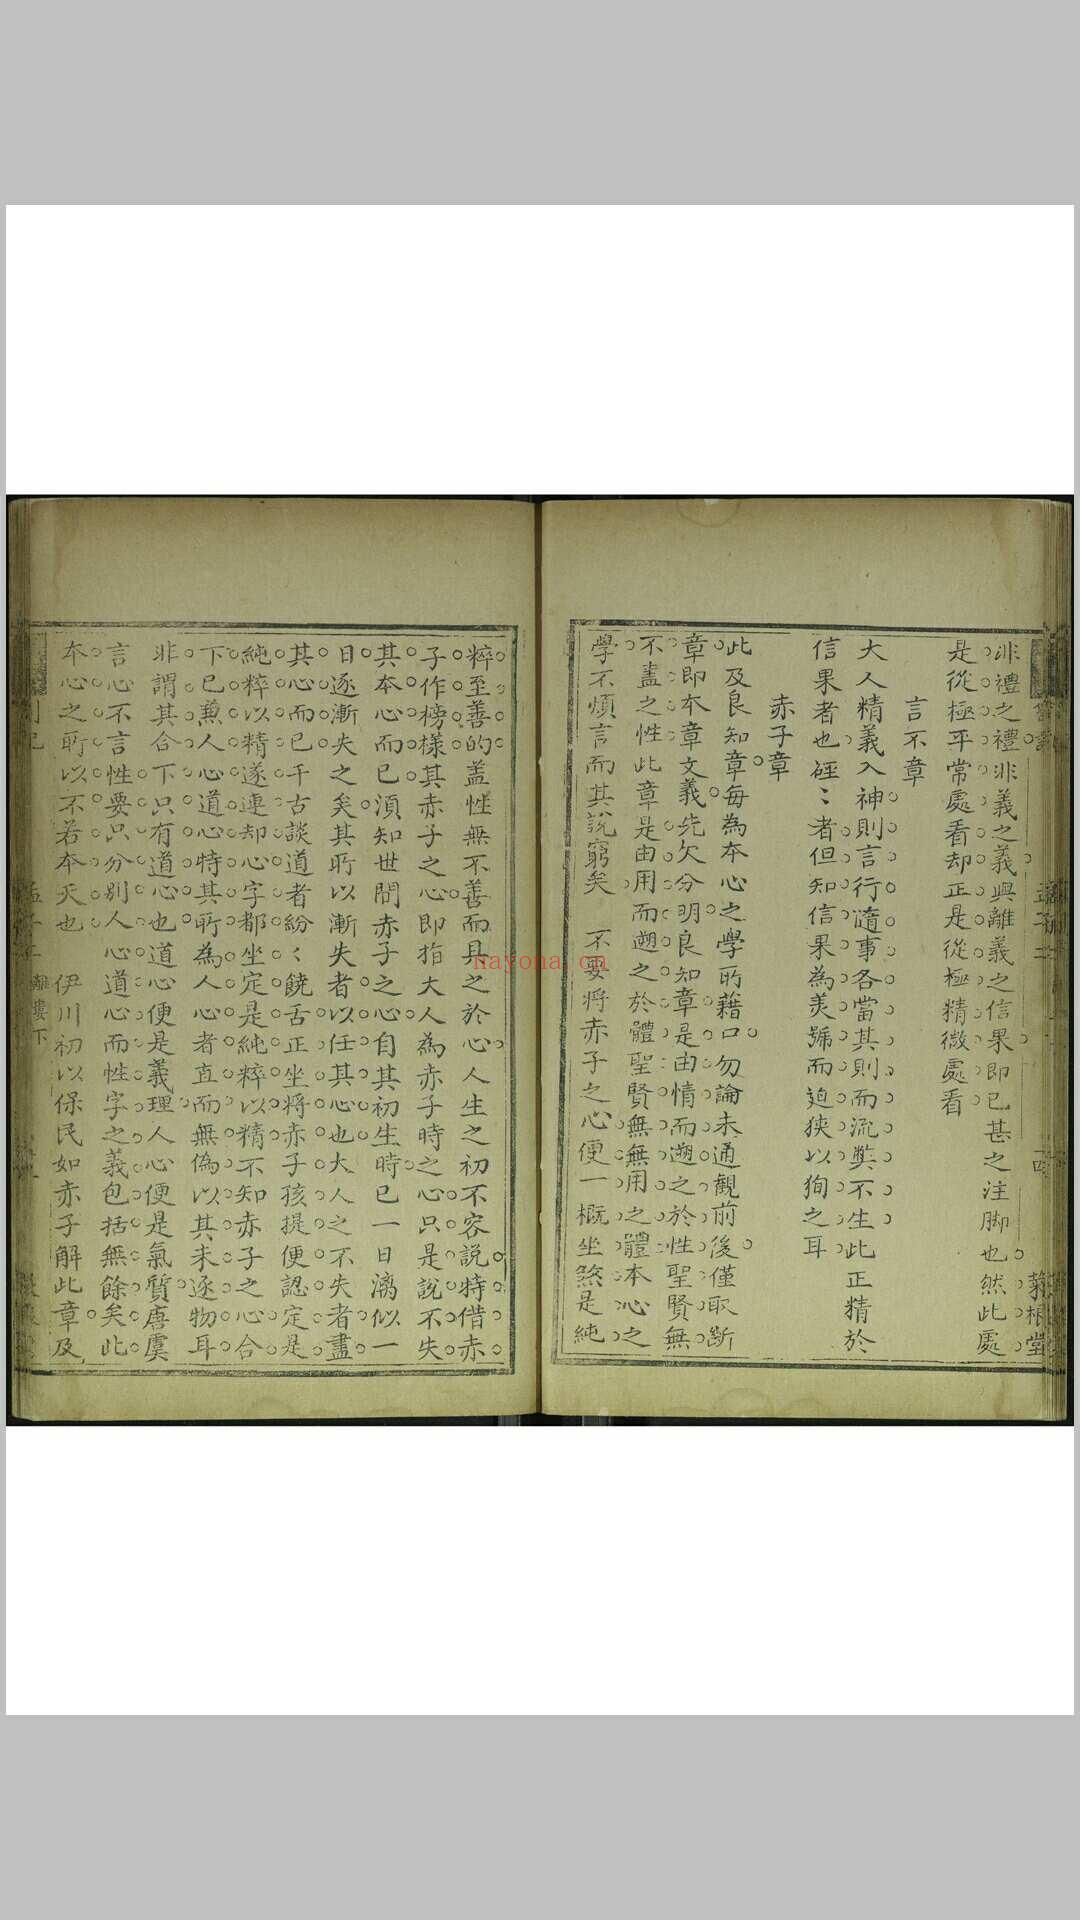 非禮之禮非義之義與離義之信果即已甚之注脚也然此處
是從極平常處看却正是從極精微處看
言不章
大人精義入神則言行隨事各當其則而流獘不生此正精於
信果者也硜〻者但知信果為美號而廹狹以狥之耳
赤子章
此及良知章每為本心之學所藉口勿論未通觀前後僅取斷
章即本章文義先欠分明良知章是由情而遡之於性聖賢無
不盡之性此章是由用而遡之於體聖賢無無用之體本心之
學不煩言而其說窮矣 不要將赤子之心便一概坐煞是純
粹至善的盖性無不善而具之於心人生之初不容說特借赤
子作榜樣其赤子之心即指大人為赤子時之心只是說不失
其本心而已湏知世間赤子之心自其初生時已一日漓似一
日逐漸失之矣其所以漸失者以任其心也大人之不失者盡
其心而已千古談道者紛〻饒舌正坐將赤子孩提便認定是
純粹以精遂連却心字都坐定是純粹以精不知赤子之心合
下已兼人心道心特其所為人心者直而無偽以其未逐物耳
非謂其合下只有道心也道心便是義理人心便是氣質唐虞
言心不言性要只分別人心道心而性字之義包括無餘矣此
本心之所以不若本天也 伊川初以保民如赤子解此章及
離婁下
nayona.cn